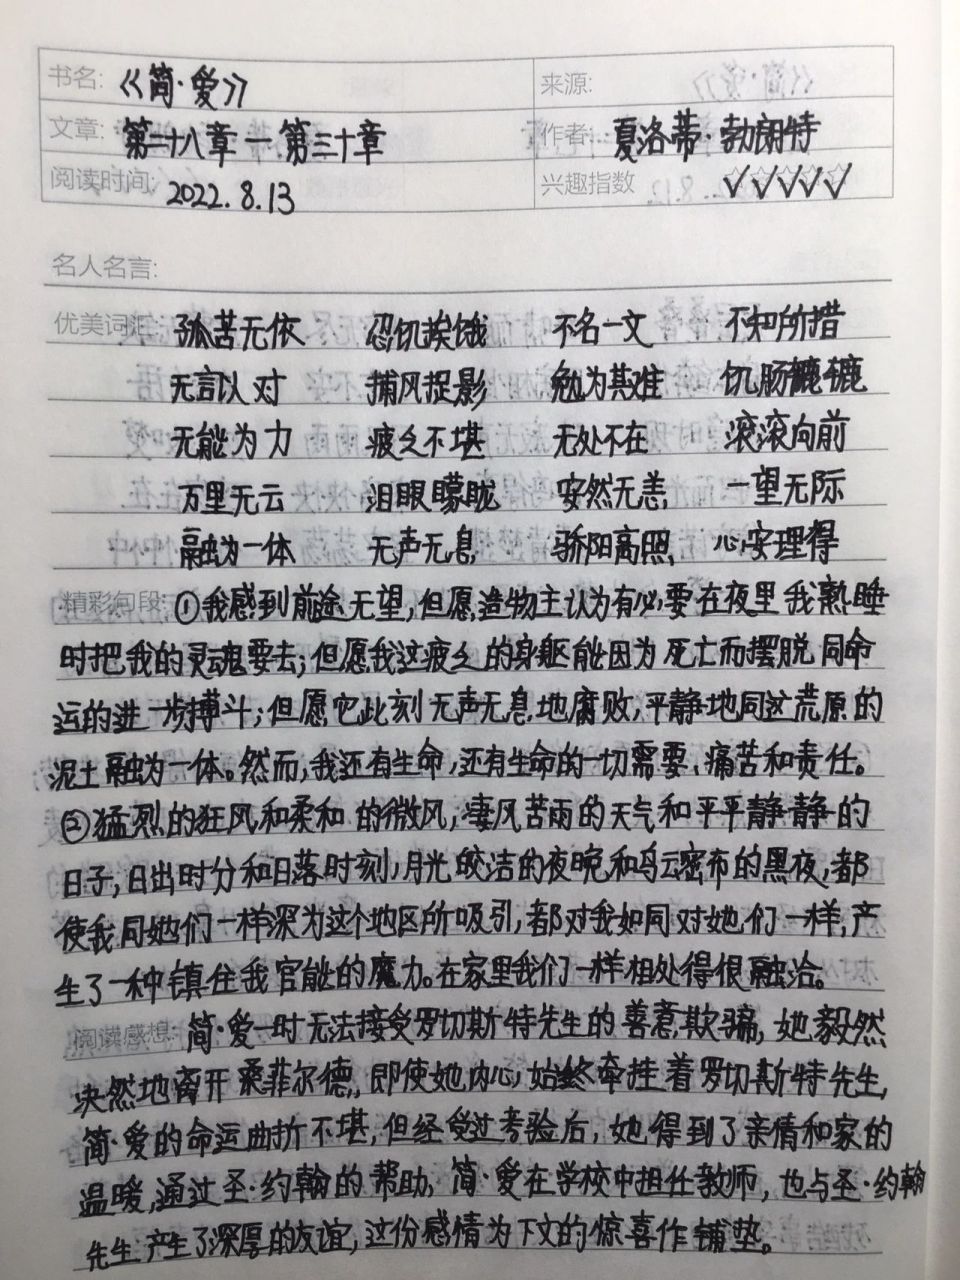 书名: 《简·爱》 来源:
文章: 第二十八章 — 第三十章 作者: 夏洛蒂·勃朗特
阅读时间: 2022.8.13 兴趣指数 ✓✓✓✓✓
名人名言:
优美词汇: 孤苦无依 忍饥挨饿 不名一文 不知所措
无言以对 捕风捉影 勉为其难 饥肠辘辘
无能为力 疲乏不堪 无处不在 滚滚向前
万里无云 泪眼朦胧 安然无恙 一望无际
融为一体 无声无息 骄阳高照 心安理得
精彩句段: ①我感到前途无望,但愿造物主认为有必要在夜里我熟睡
时把我的灵魂要去;但愿我这疲乏的身躯能因为死亡而摆脱同命
运的进一步搏斗;但愿它此刻无声无息地腐败,平静地同这荒原的
泥土融为一体。然而,我还有生命,还有生命的一切需要、痛苦和责任。
②猛烈的狂风和柔和的微风;凄风苦雨的天气和平平静静的
日子,日出时分和日落时刻,月光皎洁的夜晚和乌云密布的黑夜,都
使我同她们一样深为这个地区所吸引,都对我如同对她们一样,产
生了一种镇住我官能的魔力。在家里我们一样相处得很融洽。
阅读感想: 简·爱一时无法接受罗切斯特先生的善意欺骗,她毅然
决然地离开桑菲尔德,即使她内心始终牵挂着罗切斯特先生,
简·爱的命运曲折不堪,但经受过考验后,她得到了亲情和家的
温暖,通过圣·约翰的帮助,简·爱在学校中担任教师,也与圣·约翰
先生产生了深厚的友谊,这份感情为下文的惊喜作铺垫。